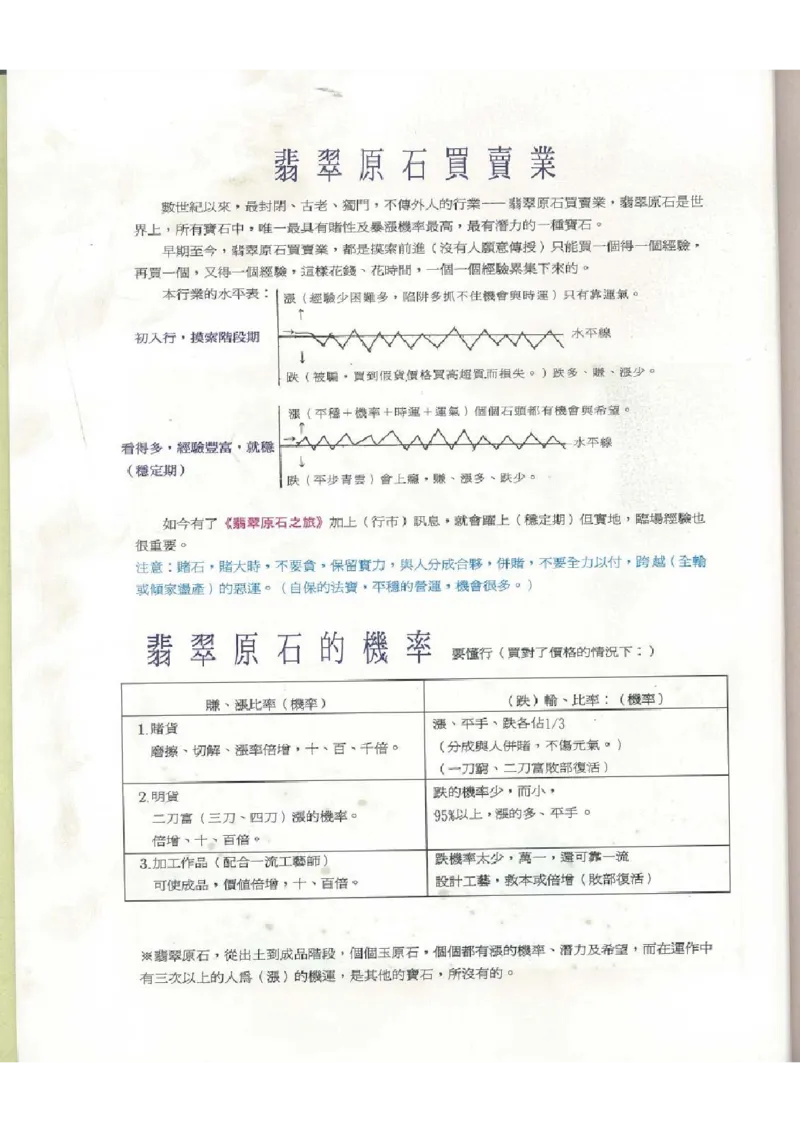 翡翠原石買賣業
數世紀以來，最封閉、古老、獨門，不傳外人的行業──翡翠原石買賣業，翡翠原石是世
界上，所有寶石中，唯一最具有賭性及暴漲機率最高，最有潛力的一種寶石。
早期至今，翡翠原石買賣業，都是摸索前進（沒有人願意傳授）只能買一個得一個經驗，
再買一個，又得一個經驗，這樣花錢、花時間，一個一個經驗累集下來的。
本行業的水平表：
漲（經驗少困難多，陷阱多抓不住機會與時運）只有靠運氣。
初入行，摸索階段期
水平線
跌（被騙，買到假貨價格買高超買而損失。）跌多、賺、漲少。
漲（平穩＋機率＋時運＋運氣）個個石頭都有機會與希望。
看得多，經驗豐富，就穩
（穩定期）
水平線
跌（平步青雲）會上癮，賺、漲多、跌少。
如今有了《翡翠原石之旅》加上（行市）訊息，就會躍上（穩定期）但實地，臨場經驗也
很重要。
注意：賭石，賭大時，不要貪，保留實力，與人分成合夥，併賭，不要全力以付，跨越（全輸
或傾家盪產）的惡運。（自保的法寶，平穩的營運，機會很多。）
翡翠原石的機率 要懂行（買對了價格的情況下：）
賺、漲比率（機率）
（跌）輸、比率：（機率）
1.賭貨
磨擦、切解、漲率倍增，十、百、千倍。
漲、平手、跌各佔1/3
（分成與人併賭，不傷元氣。）
（一刀窮、二刀富敗部復活）
2.明貨
二刀富（三刀、四刀）漲的機率。
倍增、十、百倍。
跌的機率少，而小，
95%以上，漲的多、平手。
3.加工作品（配合一流工藝師）
可使成品，價值倍增，十、百倍。
跌機率太少，萬一，還可靠一流
設計工藝，救本或倍增（敗部復活）
※翡翠原石，從出土到成品階段，個個玉原石，個個都有漲的機率、潛力及希望，而在運作中
有三次以上的人為（漲）的機運，是其他的寶石，所沒有的。